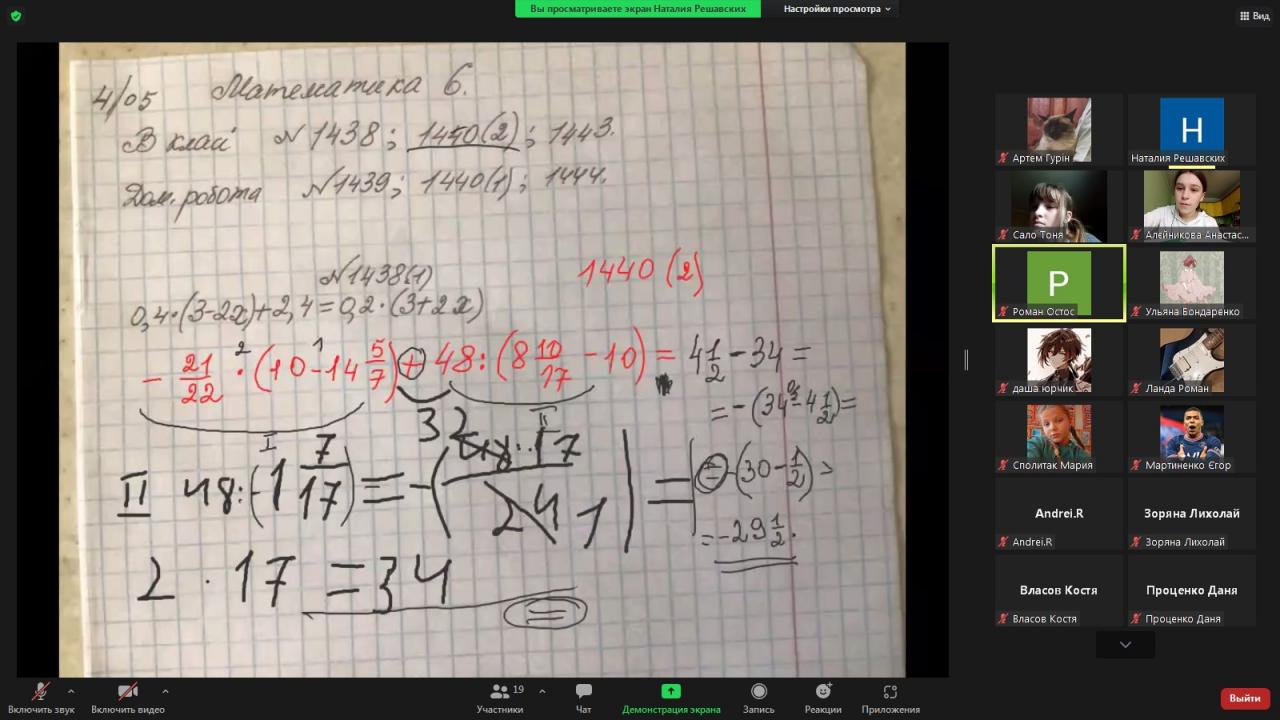 Вы просматриваете экран Наталия Решавских
Настройки просмотра
Вид
4/05 Математика 6.
В класі №1438; 1440(2); 1443.
Дом. робота №1439; 1440(1); 1444.
№1438(1)
1440 (2)
0,4·(3-2x)+2,4=0,2·(3+2x)
- 21/22 · (10-14 5/7) + 48:(8 10/17 -10) = 4 1/2 - 34 =
= -(34 - 4 1/2) =
I
II
32
II 48:(-1 7/17) = -(
17
24 1
) =
-(30 - 1/2) =
= -29 1/2.
2 · 17 = 34
=
Артем Гурін
Н
Наталия Решавских
Сало Тоня
Алейникова Анастас...
Р
Роман Остос
Ульяна Бондаренко
даша юрчик
Ланда Роман
Сполитак Мария
Мартиненко Єгор
Andrei.R
Andrei.R
Зоряна Лихолай
Зоряна Лихолай
Власов Костя
Власов Костя
Проценко Даня
Проценко Даня
Включить звук
Включить видео
19
Участники
Чат
Демонстрация экрана
Запись
Реакции
Приложения
Выйти